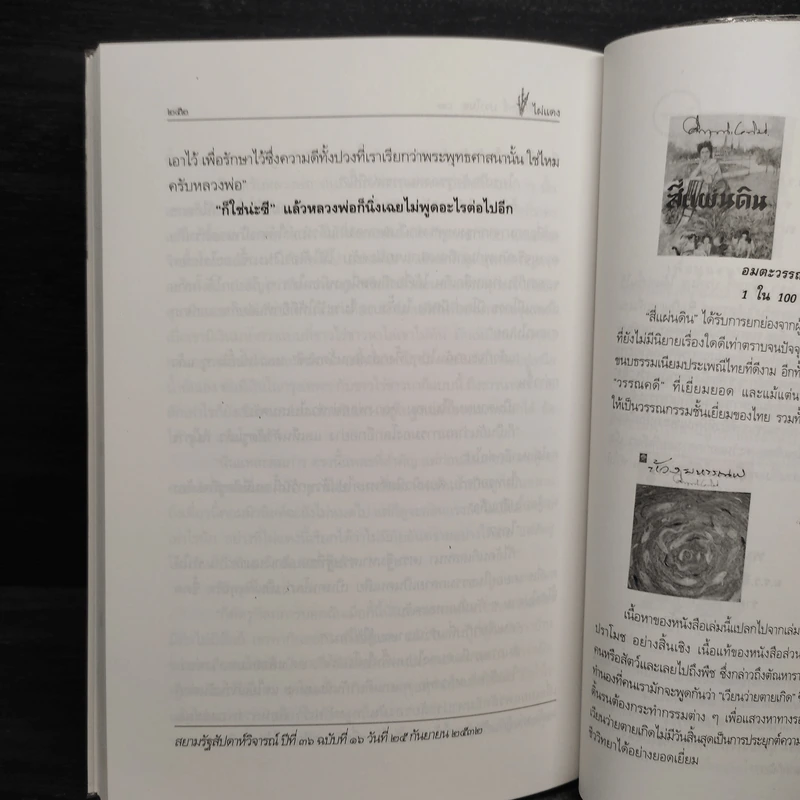 ไผ่แดง
เอาไว้ เพื่อรักษาไว้ซึ่งความดีทั้งปวงที่เราเรียกว่าพระพุทธศาสนานั้น ใช่ไหม
ครับหลวงพ่อ"
"ก็ใช่น่ะซี" แล้วหลวงพ่อก็นิ่งเฉยไม่พูดอะไรต่อไปอีก
สยามรัฐสัปดาห์วิจารณ์ ปีที่ ๓๖ ฉบับที่ ๑๖ วันที่ ๒๕ กันยายน ๒๕๓๒
สี่แผ่นดิน
อมตะวรรณ
1 ใน 100
"สี่แผ่นดิน" ได้รับการยกย่องจากผู้
ที่ยังไม่มีนิยายเรื่องใดดีเท่าตราบจนปัจจุ
ขนบธรรมเนียมประเพณีไทยที่ดีงาม อีกทั้
"วรรณคดี" ที่เยี่ยมยอด และแม้แต่น
ให้เป็นวรรณกรรมชั้นเยี่ยมของไทย รวมทั้
ห้วงมหรรณพ
เนื้อหาของหนังสือเล่มนี้แปลกไปจากเล่ม
ปราโมช อย่างสิ้นเชิง เนื้อแท้ของหนังสือส่วน
คนหรือสัตว์และเลยไปถึงพืช ซึ่งกล่าวถึงตัณหารา
ทำนองที่คนเรามักจะพูดกันว่า "เวียนว่ายตายเกิด"
ดิ้นรนต้องกระทำกรรมต่าง ๆ เพื่อแสวงหาทางรอ
เวียนว่ายตายเกิดไม่มีวันสิ้นสุดเป็นการประยุกต์ความ
ชีววิทยาได้อย่างยอดเยี่ยม